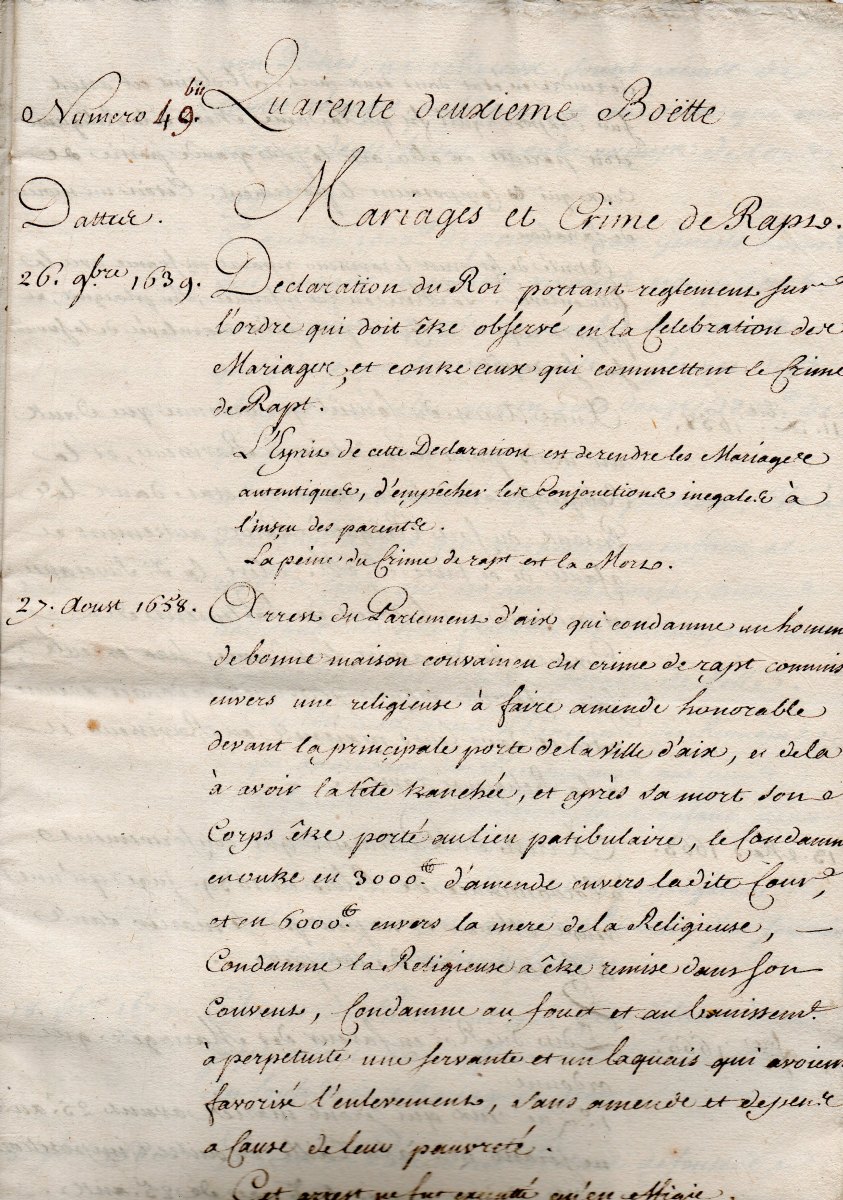 Numero 49. bis Quarente deuxieme Boëtte
Dattes. Mariages et Crime de Rapt.
26. 9bre 1639. Declaration du Roi portant reglement sur
l'ordre qui doit être observé en la Celebration des
Mariages, et contre ceux qui commettent le Crime
de Rapt.
L'Esprit de cette Declaration est de rendre les Mariages
autentiques, d'empêcher les Conjonctions inegales à
l'insçu des parents.
La peine du Crime de rapt est la Mort.
27. Aoust 1658. Arrest du Parlement d'aix qui condamne un homm
de bonne maison convaincu du crime de rapt commis
envers une religieuse à faire amende honorable
devant la principale porte de la ville d'aix, et de la
à avoir la tête tranchée, et après sa mort son
Corps être porté au lieu patibulaire, le Condamn
en outre en 3000.₶ d'amende envers ladite Cour,
et en 6000.₶ envers la mere de la Religieuse, —
Condamne la Religieuse a être remise dans son
Couvent, Condamne au fouet et au banissemt.
à perpetuité une servante et un laquais qui avoien
favorisé l'enlevement, sans amende et depens
a Cause de leur pauvreté.
Cet arrest ne fut executé qu'en effigie.